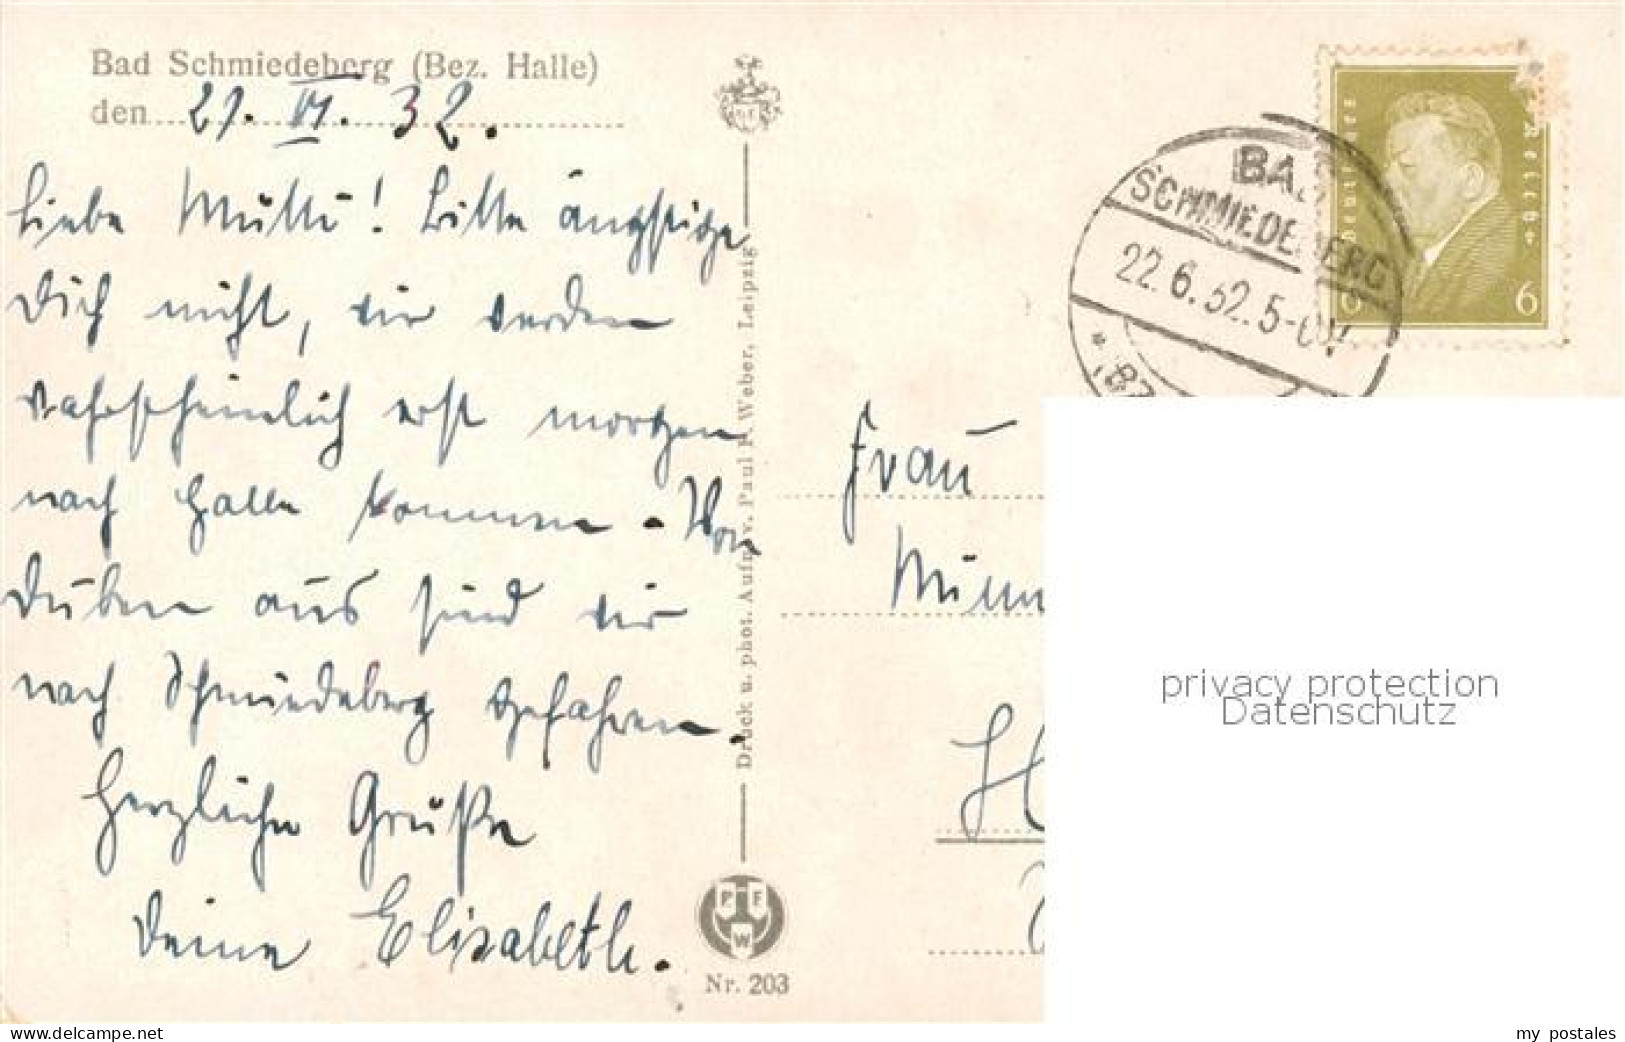 Bad Schmiedeberg (Bez. Halle)
den 21. VI. 32.
Liebe Mutti! Bitte ängstige
Dich nicht, wir werden
wahrscheinlich erst morgen
nach Halle kommen. Von
Düben aus sind wir
nach Schmiedeberg gefahren.
Herzliche Grüße
Deine Elisabeth.
Druck u. phot. Aufn. v. Paul F. Weber, Leipzig
P F W
Nr. 203
BAD
SCHMIEDEBERG
22.6.32.5-6V
Deutsches Reich
6 6
Frau
privacy protection
Datenschutz
www.delcampe.net
my_postales